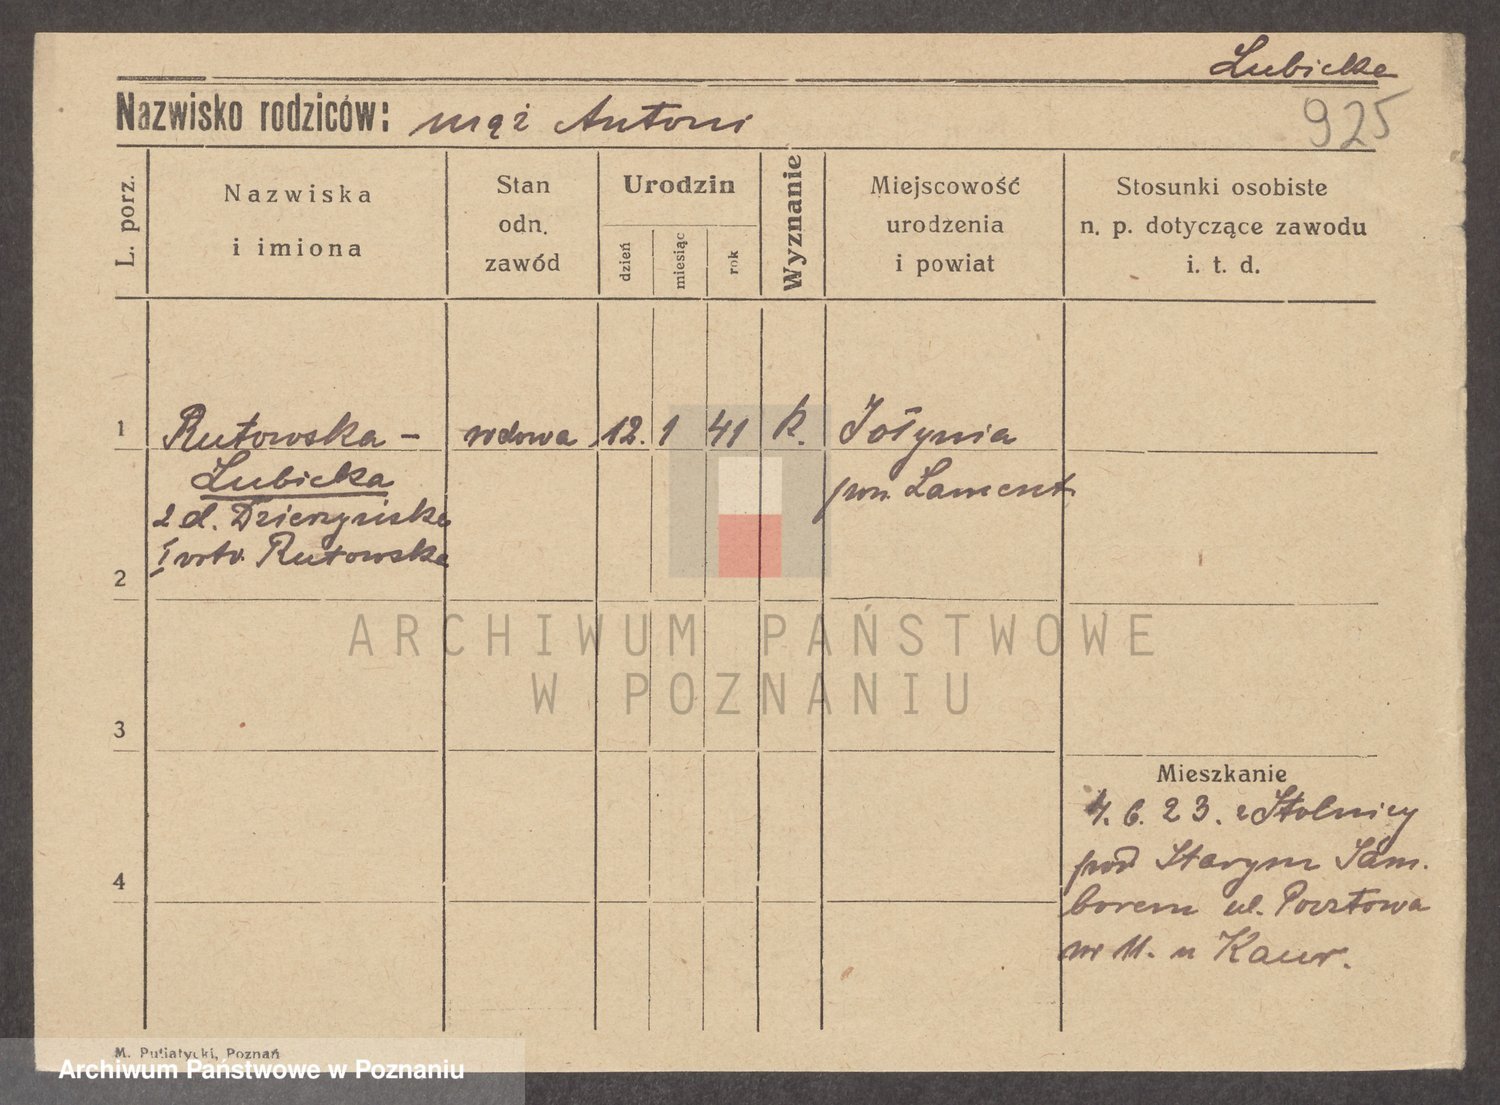 Lubicka
925
Nazwisko rodziców: mąż Antoni
L. porz.
Nazwiska
i imiona
Stan
odn.
zawód
Urodzin
dzień
miesiąc
rok
Wyznanie
Miejscowość
urodzenia
i powiat
Stosunki osobiste
n. p. dotyczące zawodu
i. t. d.
1 Rutowska - wdowa 12. 1 41 k. Żołynia
Lubicka pow. Łańcut
2 d. Dzierzyńska
I voto. Rutowska
2
3
4
Mieszkanie
4. 6. 23. z Stolnicy
pod Starym Sam.
borem ul. Pocztowa
nr 11. u
ARCHIWUM PAŃSTWOWE
W POZNANIU
M. Putiatycki, Poznań
Archiwum Państwowe w Poznaniu